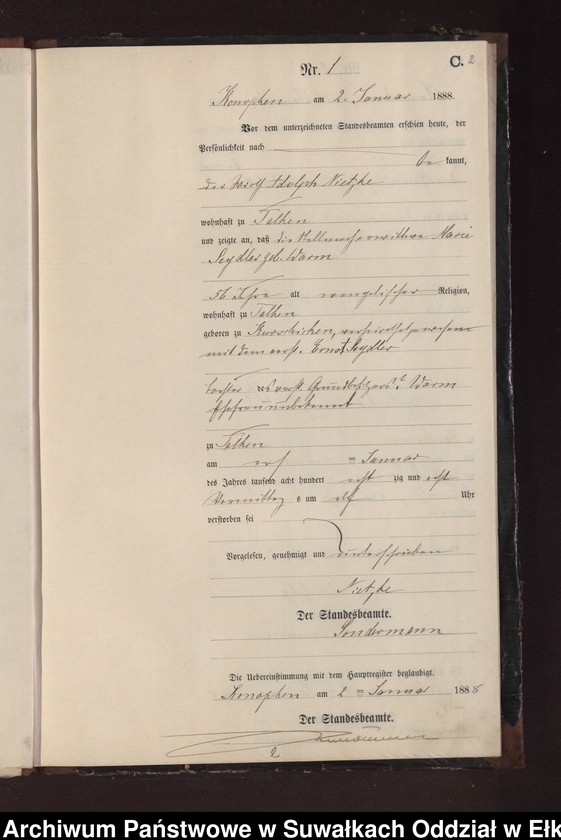 Nr. 1
C. 2
Konopken am 2. Januar 1888.
Vor dem unterzeichneten Standesbeamten erschien heute, der
Persönlichkeit nach
be kannt,
der Wirth Adolph Nietzke
wohnhaft zu Talken
und zeigte an, daß die Marie
Seydler geb. Warm
56 Jahre alt evangelischer Religion,
wohnhaft zu Talken
geboren zu verheirathet gewesen
mit dem verst. Ernst Seydler
Tochter des verst. Grundbesitzers Warm
Ehefrau unbekannt
zu Talken
am ten Januar
des Jahres tausend acht hundert acht zig und acht
Vormittags um elf Uhr
verstorben sei
Vorgelesen, genehmigt und unterschrieben
Nietzke
Der Standesbeamte.
Sondermann
Die Uebereinstimmung mit dem Hauptregister beglaubigt.
Konopken am 2 ten Januar 1888
Der Standesbeamte.
Sondermann
2
Archiwum Państwowe w Suwałkach Oddział w Ełk